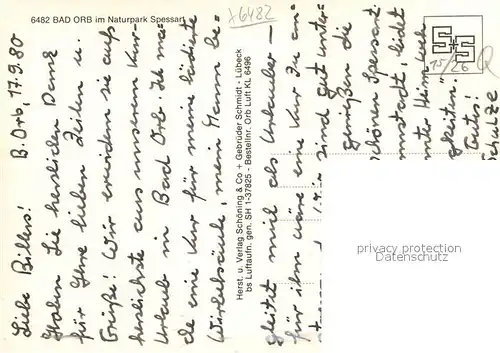 6482 BAD ORB im Naturpark Spessart
x6482
15/26
Q
Liebe Billers! B. Orb, 17.9.80
Haben Sie herzlichen Dank
für Ihre lieben Zeilen u.
Grüße! Wir erwidern sie aufs
herzlichste aus unserem Kur-
Urlaub in Bad Orb. Ich ma-
che eine Kur für meine lädierte
Wirbelsäule, mein Mann be-
gleitet mich als Urlauber –
für ihn wäre eine Kur zu an-
sind gut unter-
genießen die
schönen Spessart
leicht
unter
gleiten."
Gutes!
Schulze
Herst. u. Verlag Schöning & Co + Gebrüder Schmidt · Lübeck
bs Luftaufn. gen. SH 1-37825 - Bestellnr. Orb Luft KL 6496
privacy protection
Ansichtskarten-Center.de